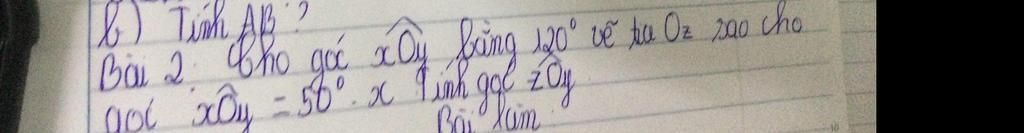 b) Tính AB?
Bài 2. Cho góc xOy bằng 120° vẽ tia Oz sao cho
góc xOy = 50°. x Tính góc zOy
Bài làm